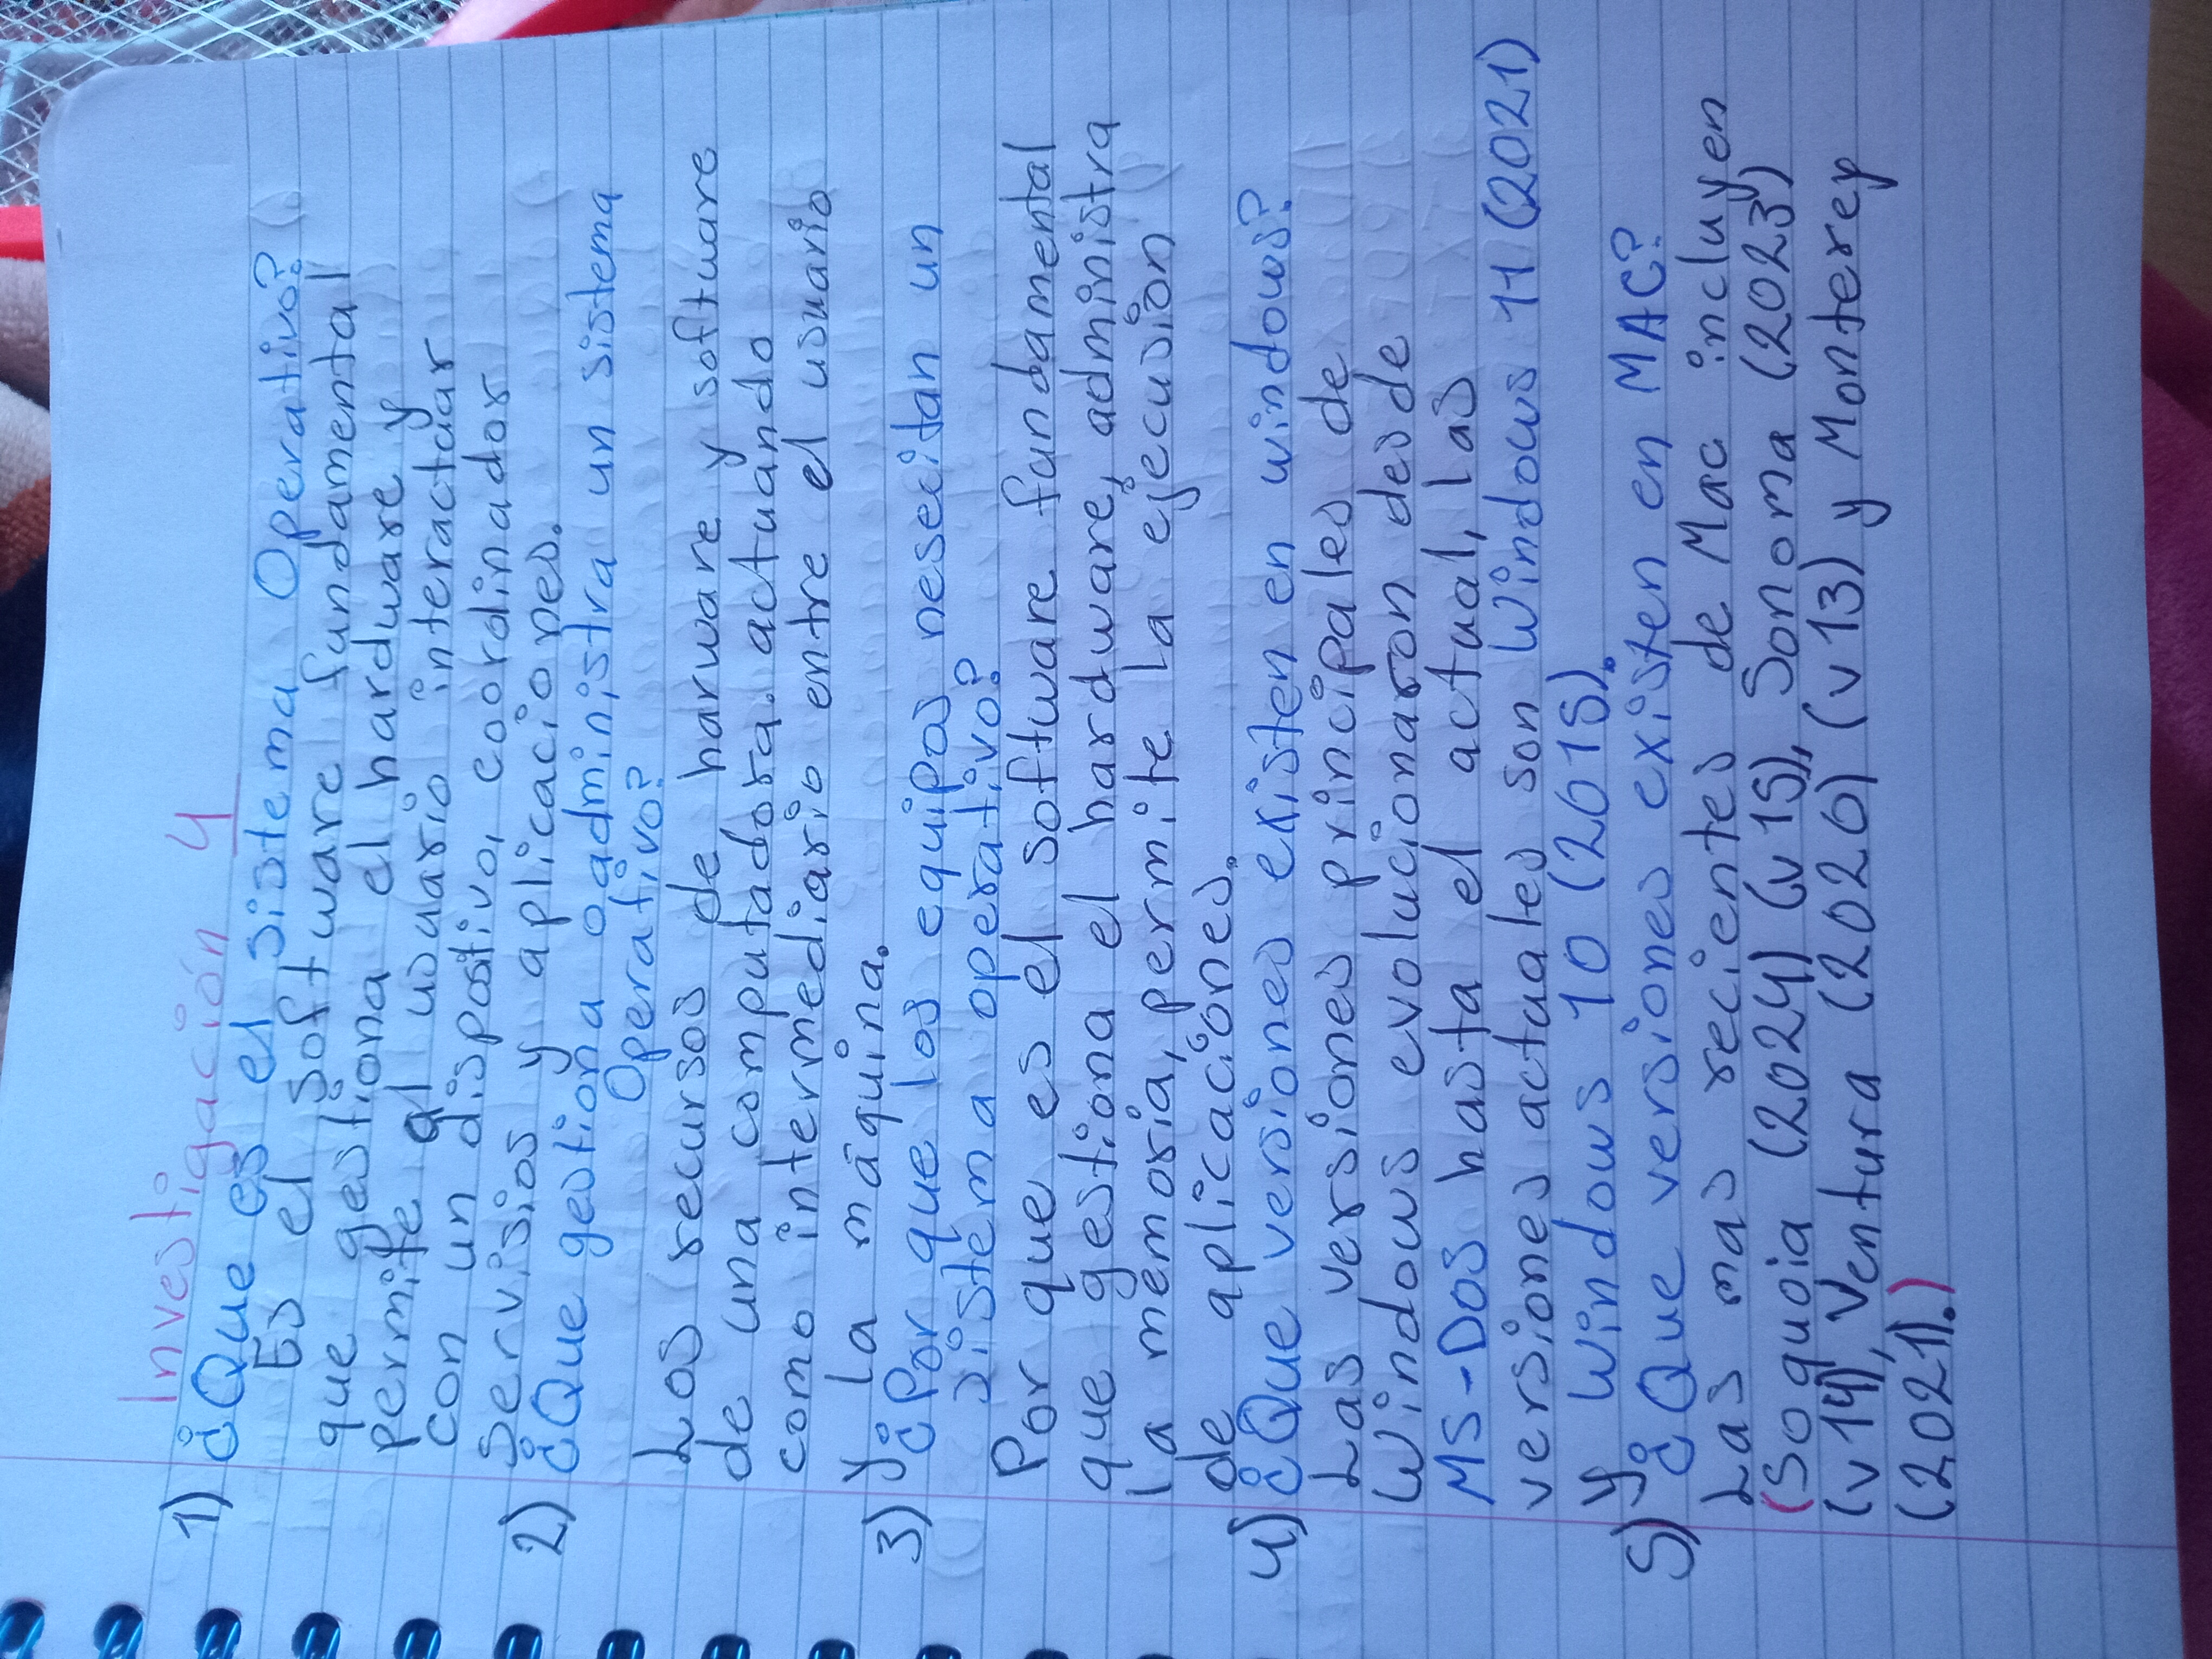 Investigación 4
1) ¿Que es el sistema Operativo?
Es el software fundamental
que gestiona el hardware y
permite al usuario interactuar
con un dispositivo, coordinador
servisios y aplicaciones.
2) ¿Que gestiona o administra un sistema
Operativo?
Los recursos de harware y software
de una computadora. actuando
como intermediario entre el usuario
y la máquina.
3) ¿Por que los equipos nesecitan un
sistema operativo?
Por que es el software fundamental
que gestiona el hardware, administra
la memoria, permite la ejecusion
de aplicaciones.
4) ¿Que versiones existen en windows?
Las versiones principales de
Windows evolucionaron desde
MS-DOS hasta el actual, las
versiones actuales son Windows 11 (2021)
y Windows 10 (2015).
5) ¿Que versiones existen en MAC?
Las mas recientes de Mac incluyen
(Soquoia (2024) (v15), Sonoma (2023)
(v14), Ventura (2020) (v13) y Monterey
(2021).)